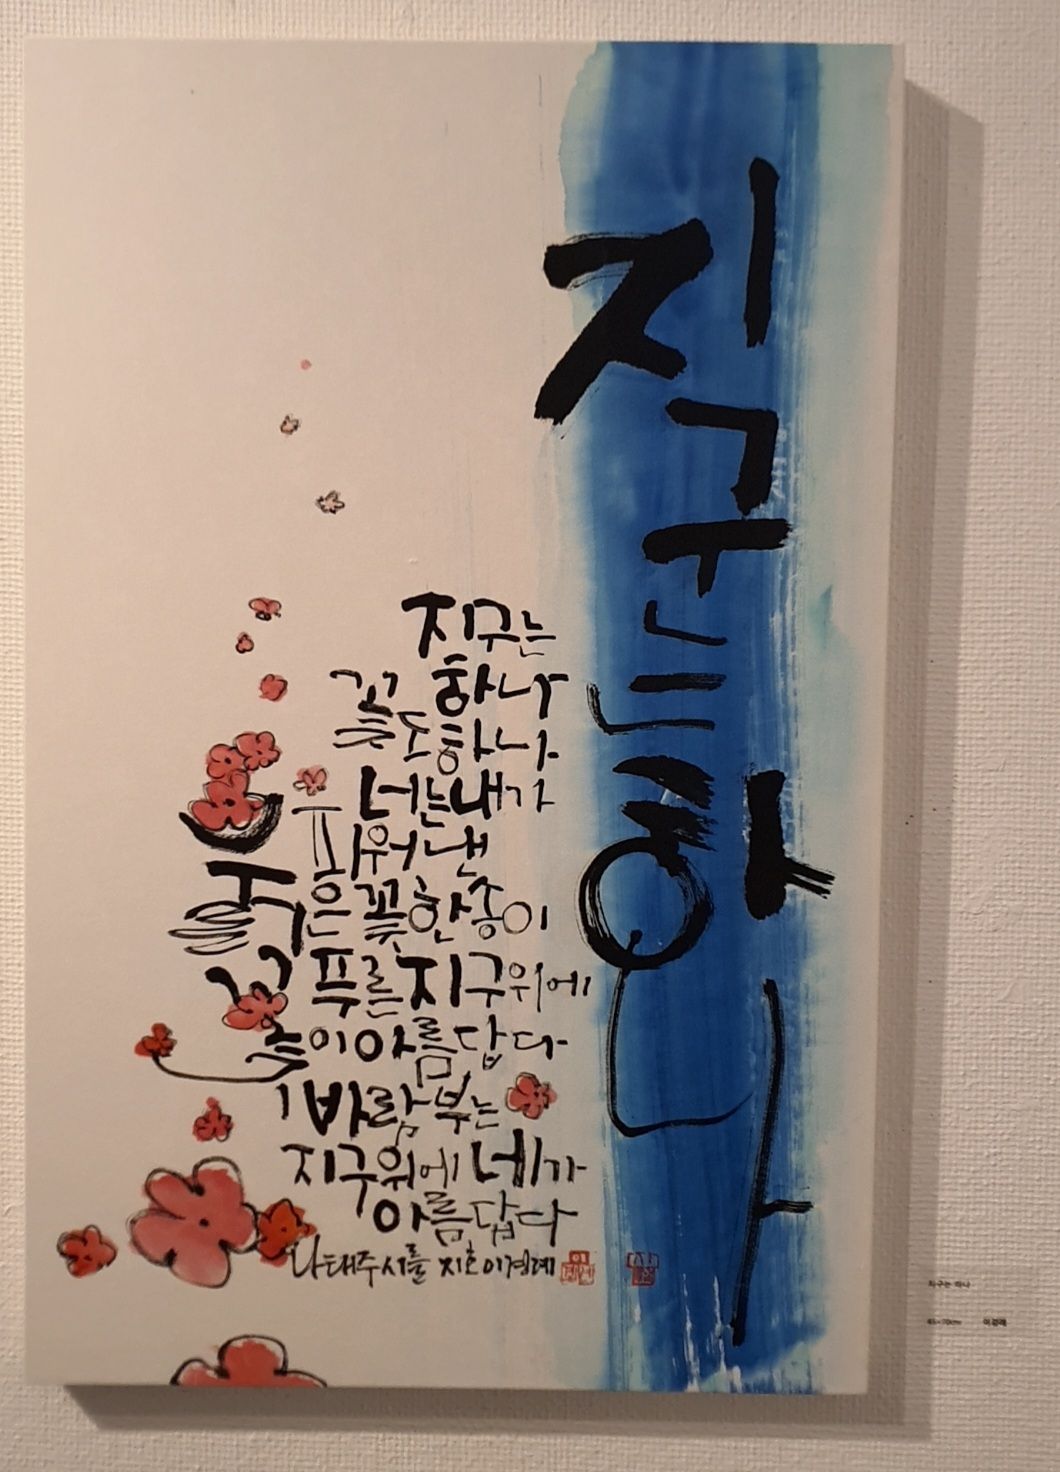 지구는 하나
지구는
하나
꽃도 하나
너는 내가
피워낸
붉은 꽃 한 송이
푸른 지구 위에
꽃이 아름답다
바람 부는
지구 위에 네가
아름답다
나태주 시를 지호 이경례
지구는 하나